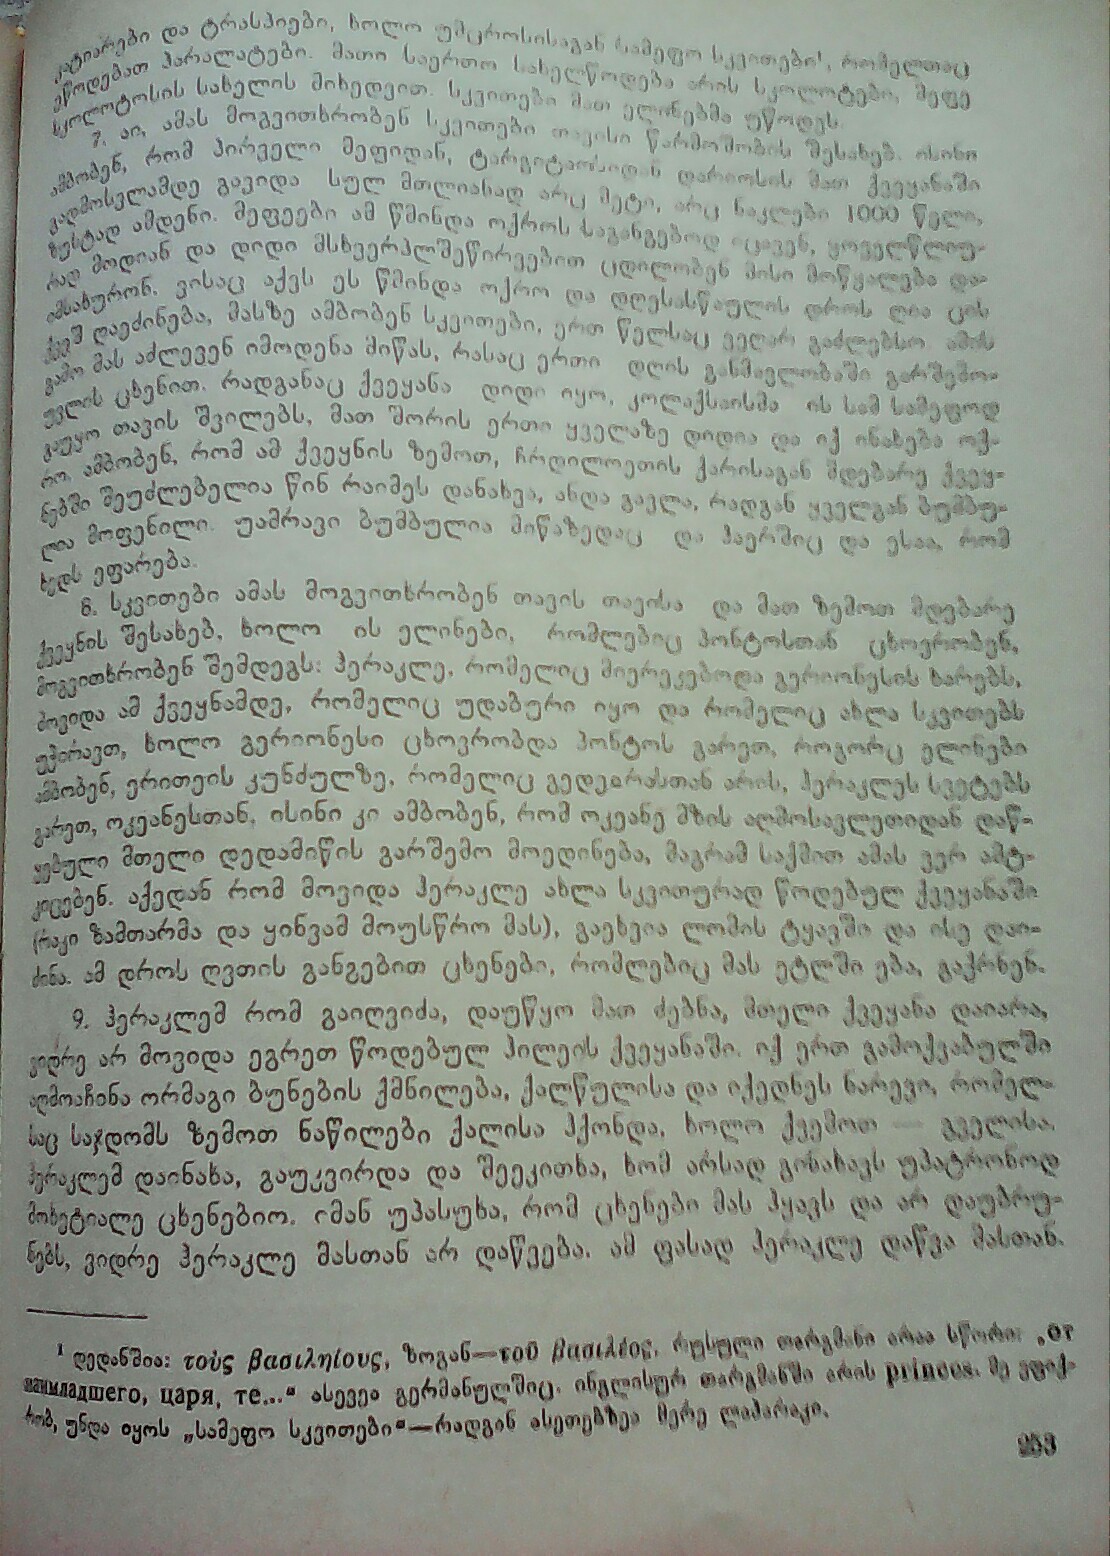 კატიარები და ტრასპიები, ხოლო უმცროსისაგან სამეფო სკვითები¹, რომელთაც
ეწოდებათ პარალატები. მათი საერთო სახელწოდება არის სკოლოტები, მეფე
სკოლოტოსის სახელის მიხედვით. სკვითები მათ ელინებმა უწოდეს.
7. აი, ამას მოგვითხრობენ სკვითები თავისი წარმოშობის შესახებ. ისინი
ამბობენ, რომ პირველი მეფიდან, ტარგიტაოსიდან დარიოსის მათ ქვეყანაში
გადმოსვლამდე გავიდა სულ მთლიანად არც მეტი, არც ნაკლები 1000 წელი,
ზუსტად ამდენი. მეფეები ამ წმინდა ოქროს საგანგებოდ იცავენ, ყოველწლიუ-
რად მოდიან და დიდი მსხვერპლშეწირვებით ცდილობენ მისი მოწყალება და-
იმსახურონ. ვისაც აქვს ეს წმინდა ოქრო და დღესასწაულის დროს ღია ცის
ქვეშ დაეძინება, მასზე ამბობენ სკვითები, ერთ წელსაც ვეღარ გაძლებსო. ამის
გამო მას აძლევენ იმოდენა მიწას, რასაც ერთი დღის განმავლობაში გარშემო-
უვლის ცხენით. რადგანაც ქვეყანა დიდი იყო, კოლაქსაისმა ის სამ სამეფოდ
გაუყო თავის შვილებს, მათ შორის ერთი ყველაზე დიდია და იქ ინახება ოქ-
რო. ამბობენ, რომ ამ ქვეყნის ზემოთ, ჩრდილოეთის ქარისაგან მდებარე ქვეყ-
ნებში შეუძლებელია წინ რაიმეს დანახვა, ანდა გავლა, რადგან ყველგან ბუმბუ-
ლია მოფენილი. უამრავი ბუმბულია მიწაზედაც და ჰაერშიც და ესაა, რომ
ხედს ეფარება.
8. სკვითები ამას მოგვითხრობენ თავის თავისა და მათ ზემოთ მდებარე
ქვეყნის შესახებ, ხოლო ის ელინები, რომლებიც პონტოსთან ცხოვრობენ,
მოგვითხრობენ შემდეგს: ჰერაკლე, რომელიც მიერეკებოდა გერიონესის ხარებს,
მოვიდა ამ ქვეყნამდე, რომელიც უდაბური იყო და რომელიც ახლა სკვითებს
უჭირავთ, ხოლო გერიონესი ცხოვრობდა პონტოს გარეთ, როგორც ელინები
ამბობენ, ერითეის კუნძულზე, რომელიც გედეირასთან არის, ჰერაკლეს სვეტებს
გარეთ, ოკეანესთან. ისინი კი ამბობენ, რომ ოკეანე მზის აღმოსავლეთიდან დაწ-
ყებული მთელი დედამიწის გარშემო მოედინება, მაგრამ საქმით ამას ვერ ამტ-
კიცებენ. აქედან რომ მოვიდა ჰერაკლე ახლა სკვითურად წოდებულ ქვეყანაში
(რაკი ზამთარმა და ყინვამ მოუსწრო მას), გაეხვია ლომის ტყავში და ისე დაი-
ძინა. ამ დროს ღვთის განგებით ცხენები, რომლებიც მას ეტლში ება, გაქრნენ.
9. ჰერაკლემ რომ გაიღვიძა, დაუწყო მათ ძებნა, მთელი ქვეყანა დაიარა,
ვიდრე არ მოვიდა ეგრეთ წოდებულ ჰილეის ქვეყანაში. იქ ერთ გამოქვაბულში
აღმოაჩინა ორმაგი ბუნების ქმნილება, ქალწულისა და იქედნეს ნარევი, რომელ-
საც საჯდომს ზემოთ ნაწილები ქალისა ჰქონდა, ხოლო ქვემოთ — გველისა.
ჰერაკლემ დაინახა, გაუკვირდა და შეეკითხა, ხომ არსად გინახავს უპატრონოდ
მოხეტიალე ცხენებიო. იმან უპასუხა, რომ ცხენები მას ჰყავს და არ დაუბრუ-
ნებს, ვიდრე ჰერაკლე მასთან არ დაწვება. ამ ფასად ჰერაკლე დაწვა მასთან.
¹ დედანშია: τοὺς βασιληίους, ზოგან—τοῦ βασιλέος, რუსული თარგმანი არაა სწორი: „от
наимладшего, царя, те...“ ასევეა გერმანულშიც. ინგლისურ თარგმანში არის princes. მე ვფიქ-
რობ, უნდა იყოს „სამეფო სკვითები“—რადგან ასეთებზეა მერე ლაპარაკი.
253